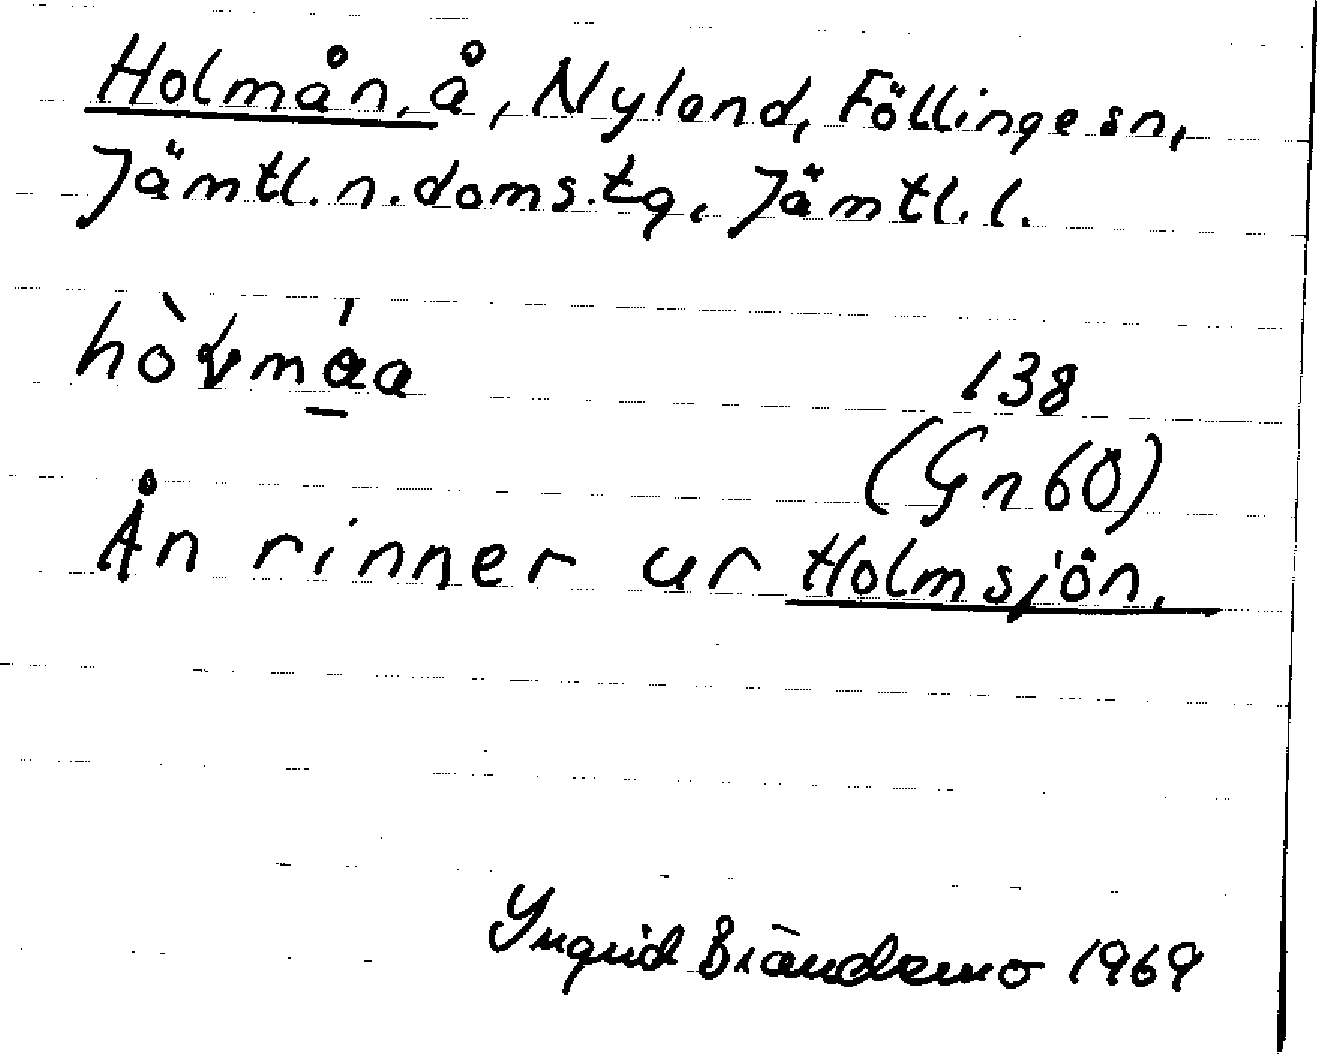 Holmån, å, Nyland, Föllinge sn,
Jämtl. n. doms.tg, Jämtl. l.
138
(Gn 60)
Ån rinner ur Holmsjön.
Ingrid Brändemo 1969